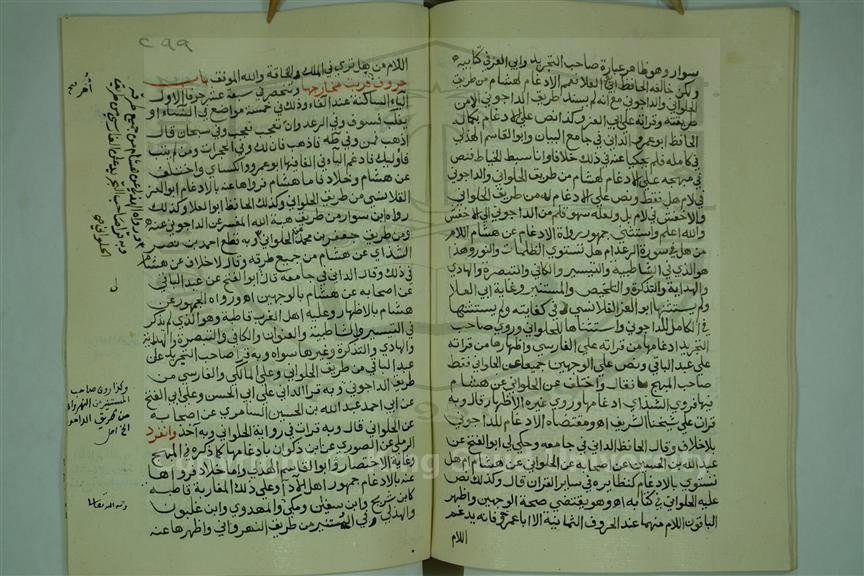 سوار وهو ظاهر عبارة صاحب التجريد وابي العز في كتابيه
ولكن خالفه الحافظ ابو العلا فعمم الادغام لهشام من طريق
الحلواني والداجوني مع انه لم يسند طريق الداجوني الا من
طريقته وقراته على ابي العز وكذا نص على الادغام بكماله
الحافظ ابو عمرو الداني في جامع البيان وابو القاسم الهذلي
في كامله فلم يحكيا عنه في ذلك خلافا واما سبط الخياط فنص
في مبهجه على الادغام لهشام من طريق الحلواني والداجوني
في لام هل فقط ونص على الادغام له من طريق الحلواني
والاخفش في لام بل ولعله سهو قلم من الداجوني الى الاخفش
والله اعلم واستثنى جمهور رواة الادغام عن هشام اللام
من هل في سورة الرعد ام هل تستوي الظلمات والنور وهذا
هو الذي في الشاطبية والتيسير والكافي والتبصرة والهادي
والهداية والتذكرة والتلخيص والمستنير وغاية ابي العلا
ولم يستثنها ابو العز القلانسي في كفايته ولم يستثنها
في الكامل للداجوني واستثناها للحلواني وروى صاحب
التجريد ادغامها من قراته على الفارسي واظهارها من قراته
على عبد الباقي ونص على الوجهين جميعا عن الحلواني فقط
صاحب المبهج فقال واختلف عن الحلواني عن هشام
فيها فروى الشذاي ادغامها وروى غيره الاظهار قال وبه
قرات على شيخنا الشريف اه ومقتضاه الادغام للداجوني
بلا خلاف وقال الحافظ الداني في جامعه وحكى لي ابو الفتح عن
عبد الله بن الحسين عن اصحابه عن الحلواني عن هشام ام هل
تستوي بالادغام كنظايره في ساير القران قال وكذلك نص
عليه الحلواني في كتابه اه وهو يقتضي صحة الوجهين واظهر
الباقون اللام منهما عند الحروف الثمانية الا ابا عمرو فانه يدغم
اللام
٢٩٩
اللام من هل ترى في الملك والحاقة والله الموفق باب
حروف قربت مخارجها وتنحصر في سبعة عشر حرفا الاول
الباء الساكنة عند الفاء وذلك في خمسة مواضع في النساء او
يغلب فسوف وفي الرعد وان تعجب فعجب وفي سبحان قال
اذهب فمن وفي طه فاذهب فان لك وفي الحجرات ومن لم يتب
فاوليك فادغم الباء في الفاء فيها ابو عمرو والكسائي واختلف
عن هشام وخلاد فاما هشام فرواها عنه بالادغام ابو العز
القلانسي من طريق الحلواني وكذلك الحافظ ابو العلا وكذلك
رواه ابن سوار من طريق هبة الله المفسر عن الداجوني عنه
ومن طريق جعفر بن محمد عن الحلواني وبه قطع احمد بن نصر
الشذاي عن هشام من جميع طرقه وقال لا خلاف عن هشام
في ذلك وقال الداني في جامعه قال لي ابو الفتح عن عبد الباقي
عن اصحابه عن هشام بالوجهين اه ورواه الجمهور عن
هشام بالاظهار وعليه اهل الغرب قاطبة وهو الذي لم يذكر
في التيسير والشاطبية والعنوان والكافي والتبصرة والهداية
والهادي والتذكرة وغيرها سواه وبه قرا صاحب التجريد على
عبد الباقي من طريق الحلواني وعلى المالكي والفارسي من
طريق الداجوني وبه قرا الداني على ابي الحسن وعلى ابي الفتح
عن ابي احمد عبد الله بن الحسين السامري عن اصحابه
عن الحلواني قال وبه قرات في رواية الحلواني وبه آخذ وانفرد
الرملي عن الصوري عن ابن ذكوان بادغامها كما ذكره في المبهج
وغاية الاختصار وابو القاسم الهذلي واما خلاد فرواها
عنه بالادغام جمهور اهل الاداء وعلى ذلك المغاربة قاطبة
كابن شريح وابن سفيان ومكي والمهدوي وابن غلبون
والهذلي وفي المستنير من طريق النهرواني واظهرها عنه
وكذا روى صاحب
المستنير عن النهرواني
من طريق الداجوني